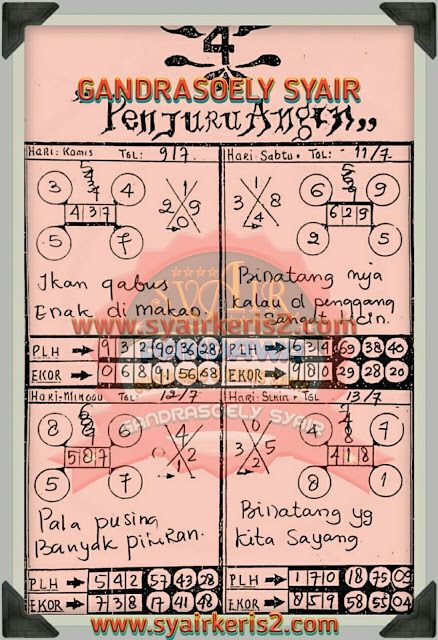 4
GANDRASOELY SYAIR
"Penjuru Angin,,
Hari: Kamis TGL: 9/7
3 4
4 3 7
5 7
1
2 9
0
Ikan gabus
Enak di makan.
PLH 9 3 2 90 36 28
EKOR 0 6 8 91 56 68
Hari: Sabtu. TGL: 11/7
6 9
6 2 9
2 5
4
3 8
Binatang nya
kalau d penggang
Sangat licin.
PLH 6 3 4 69 38 40
EKOR 9 8 0 29 28 20
www.syairkeris2.com
SYAIR
GANDRASOELY SYAIR
Hari=Minggu TGL 12/7
8 6
5 8 7
5 7
4
1
2
Pala pusing
Banyak pikiran.
PLH 5 4 2 57 43 28
EKOR 7 3 8 17 41 48
Hari: Senin TGL 13/7
4 7
4 1 8
8 1
6
3 5
2
Binatang yg
kita Sayang.
PLH 1 7 0 18 75 09
EKOR 8 5 9 58 55 04
www.syairkeris2.com